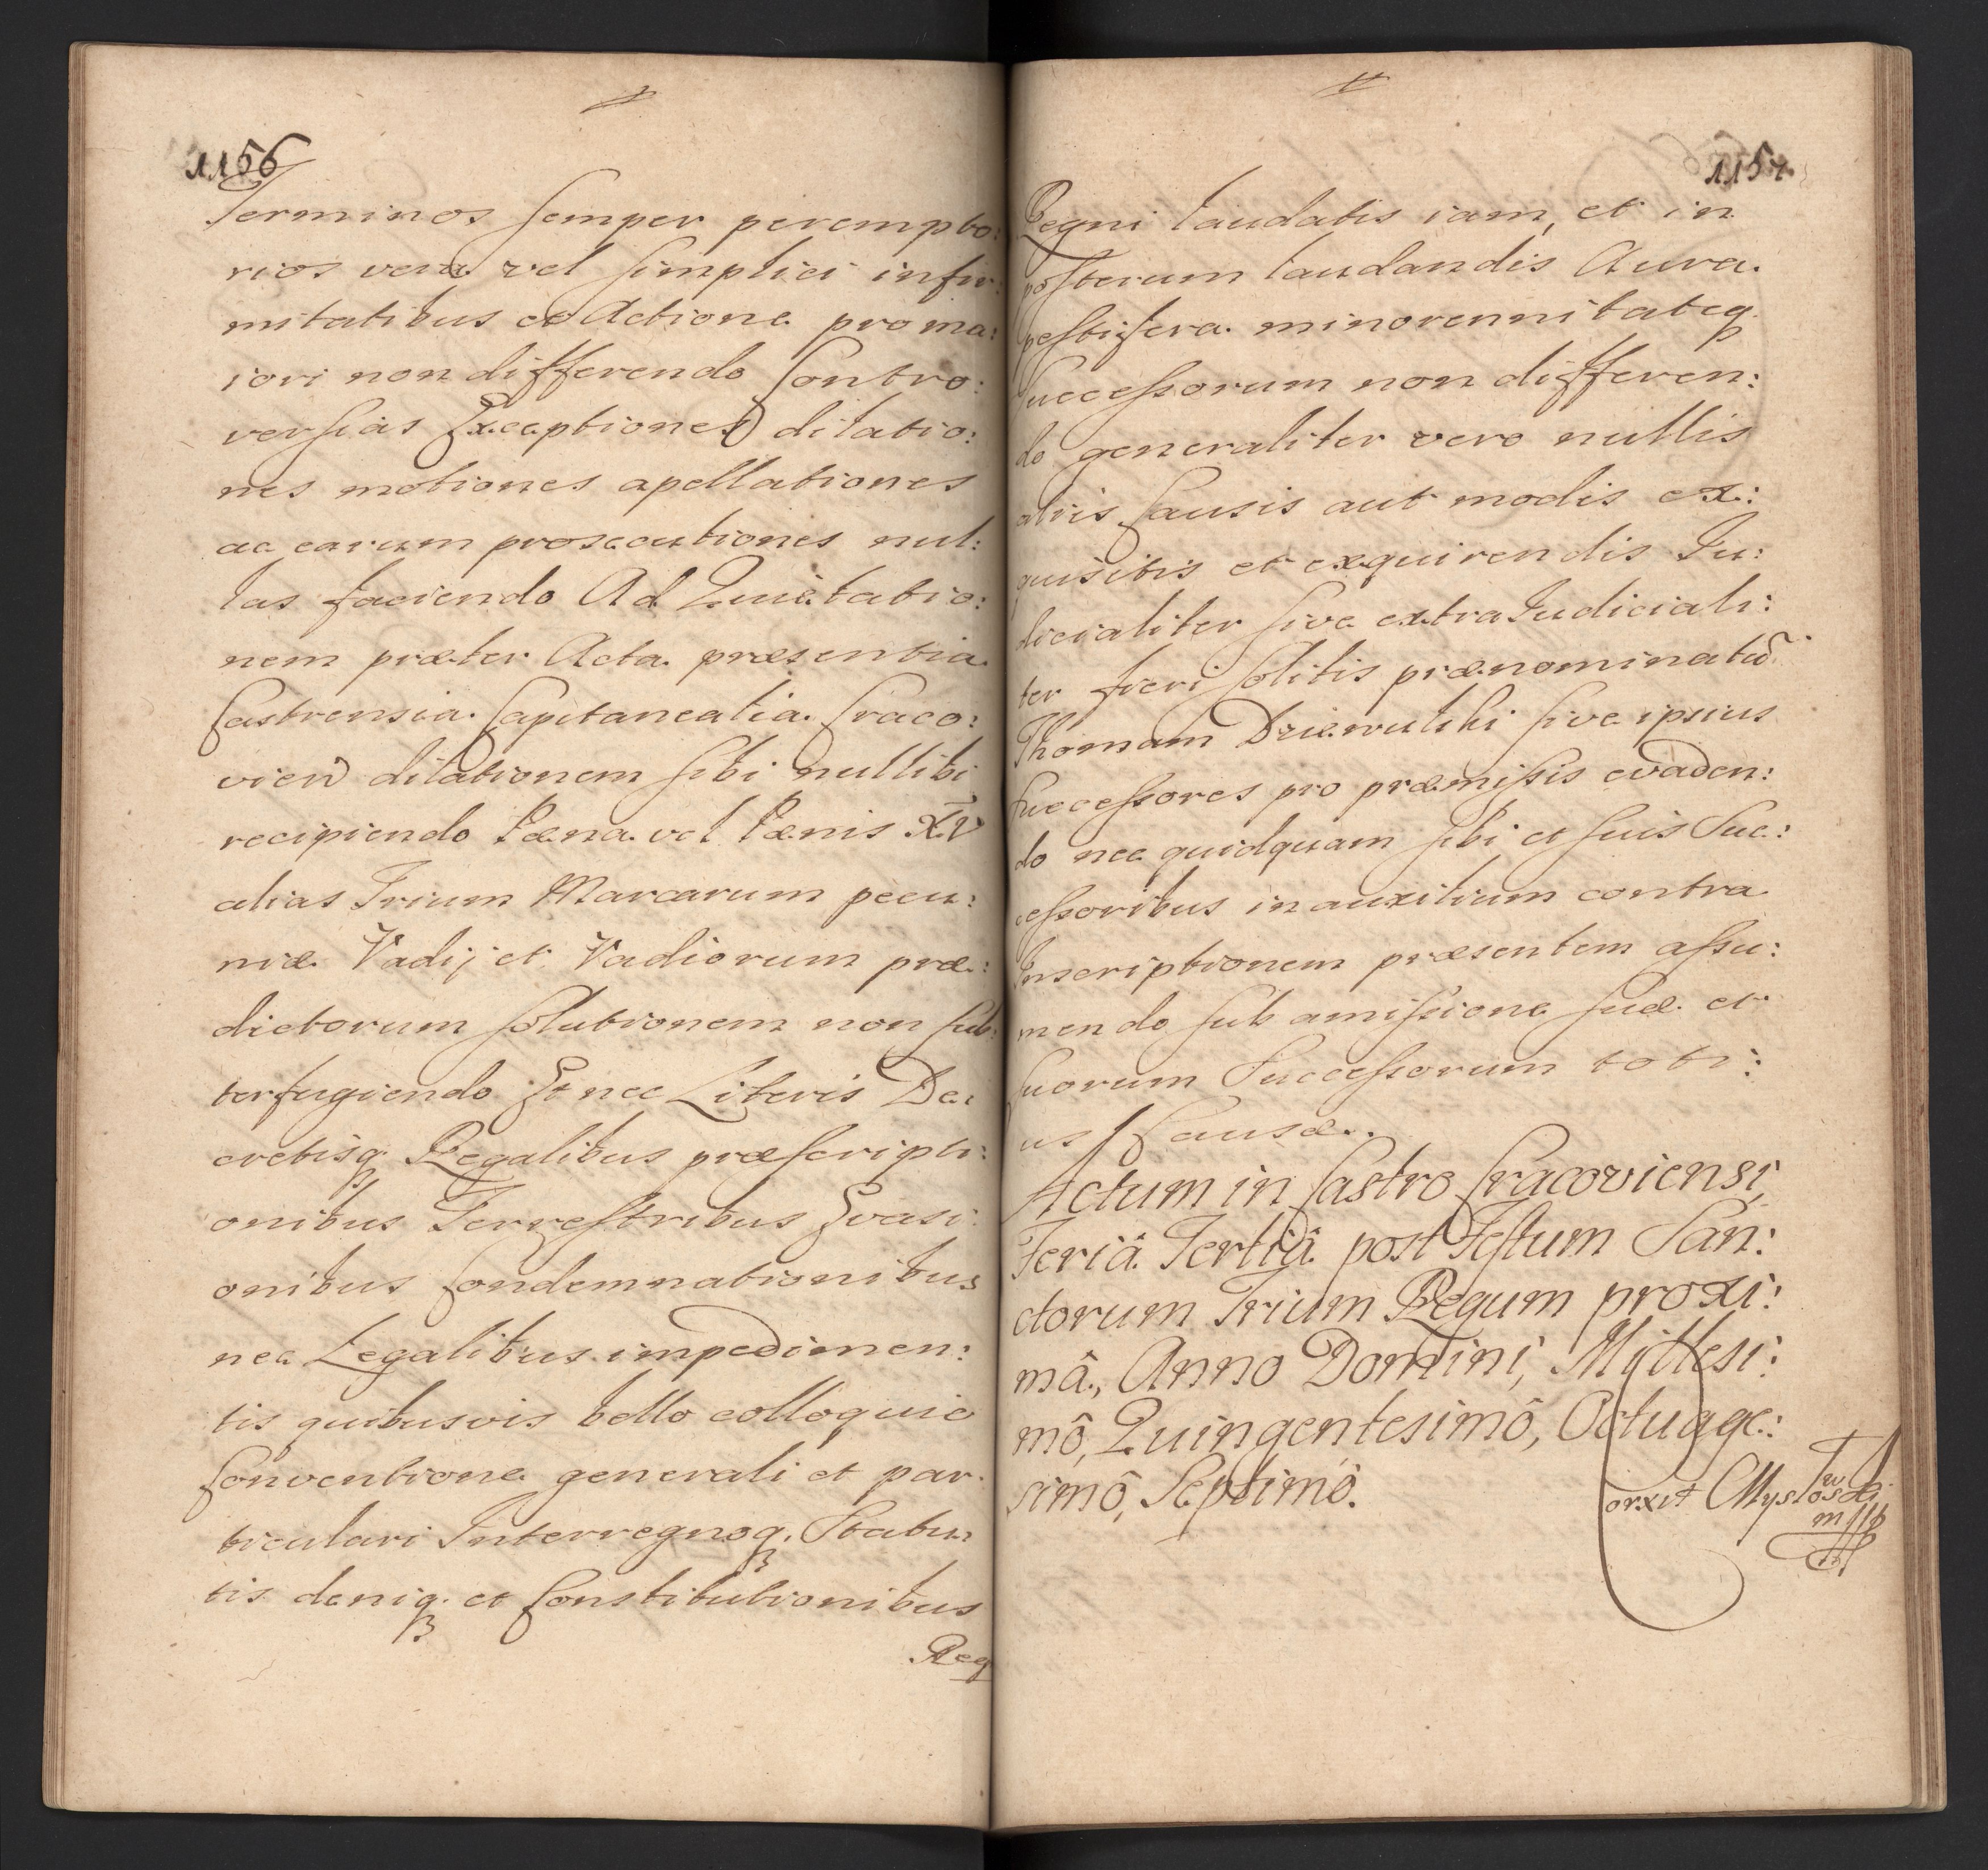 1156
Terminos semper perempto:
rios vera vel simplici infir:
mitatibus et Actione pro ma:
iori non differendo Contro:
versias Exceptiones dilatio:
nes motiones apellationes
ac earum prosecutiones nul:
las faciendo Ad Quietatio:
nem præter Acta præsentia
Castrensia Capitanealia Craco:
vien dilationem sibi nullibi
recipiendo Pæna vel Pænis XIV
alias Trium Marcarum pecu:
niæ Vadij et Vadiorum præ:
dictorum solutionem non sub:
terfugiendo Et nec Literis De:
cretisq. Regalibus præscripti:
onibus Terrestribus Evasi:
onibus Condemnationibus
nec Legalibus impedimen:
tis quibusvis bello colloquio
Conventione generali et par:
ticulari Interregnoq. Statu:
tis deniq. et Constitutionibus
Reg
1157.
Regni laudatis iam, et in
posterum laudandis Aura
pestifera minorennitateq.
Successorum non differen:
do generaliter vero nullis
aliis Causis aut modis ex:
quisitis et exquirendis Ju:
dicialiter sive extraJudiciali:
ter fieri solitis prænominatũ
Thomam Dziewulski sive ipsius
successores pro præmissis evaden:
do nec quidquam sibi et suis Suc:
cessoribus in auxilium contra
Inscriptionem præsentem assu:
mendo sub amissione suæ et
suorum Successorum toti:
us Causæ.
Actum in Castro Cracoviensi,
Feriâ Tertiâ post Festum San:
ctorum Trium Regum proxi:
mâ, Anno Domini, Millesi:
mô, Quingentesimô, Octuage:
simô, Septimô.